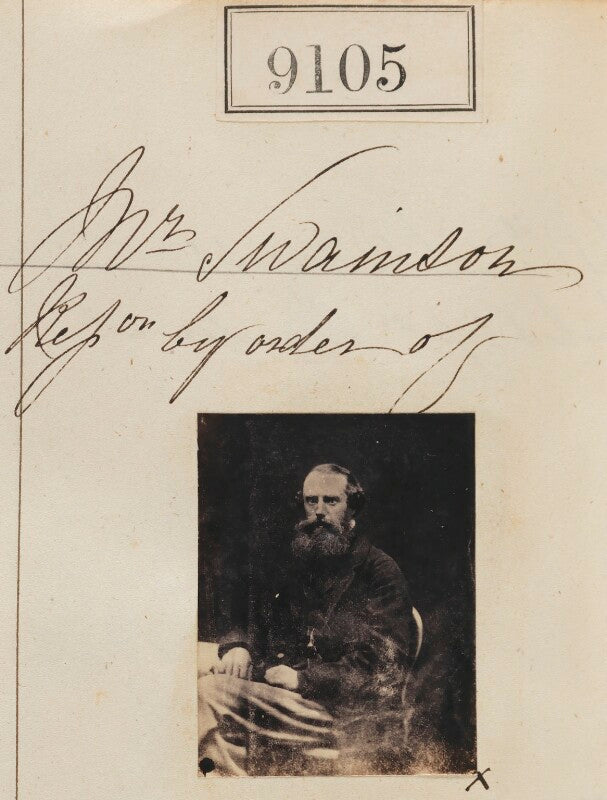 9105
Mr Swainson
Repon by order of
x